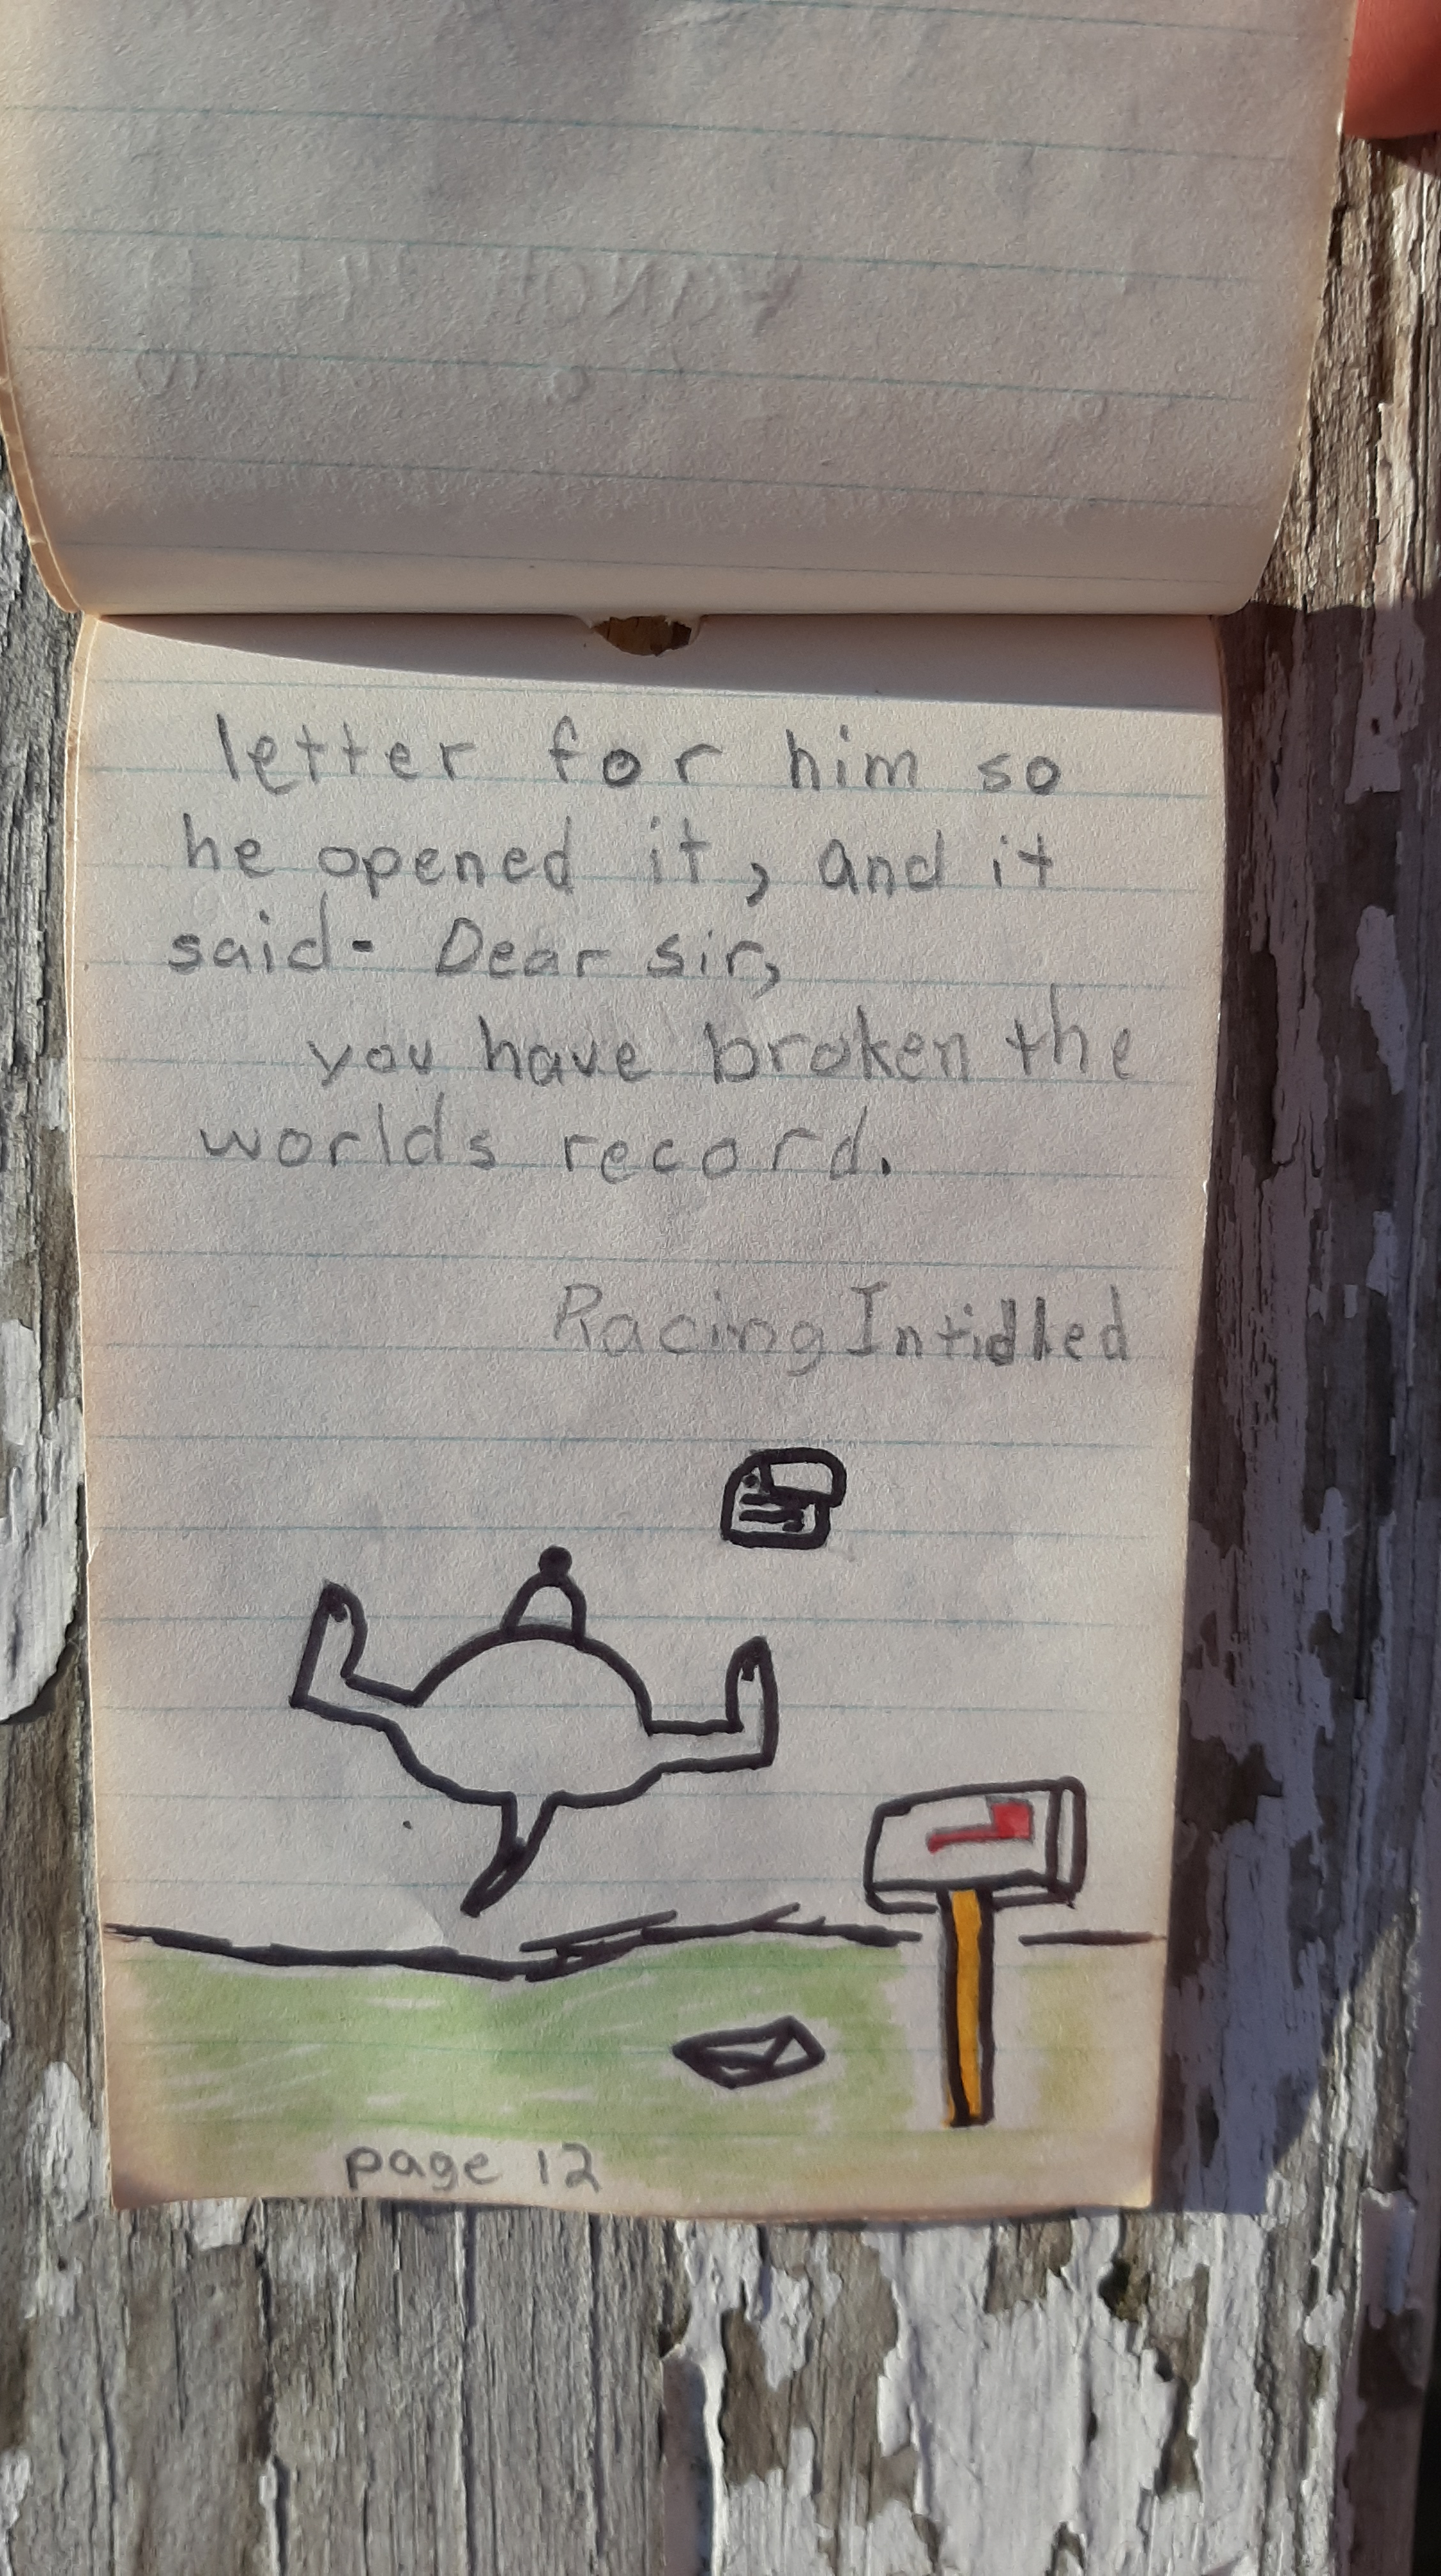 letter for him so
he opened it, and it
said- Dear sir,
you have broken the
worlds record.
Racing Intidled
page 12